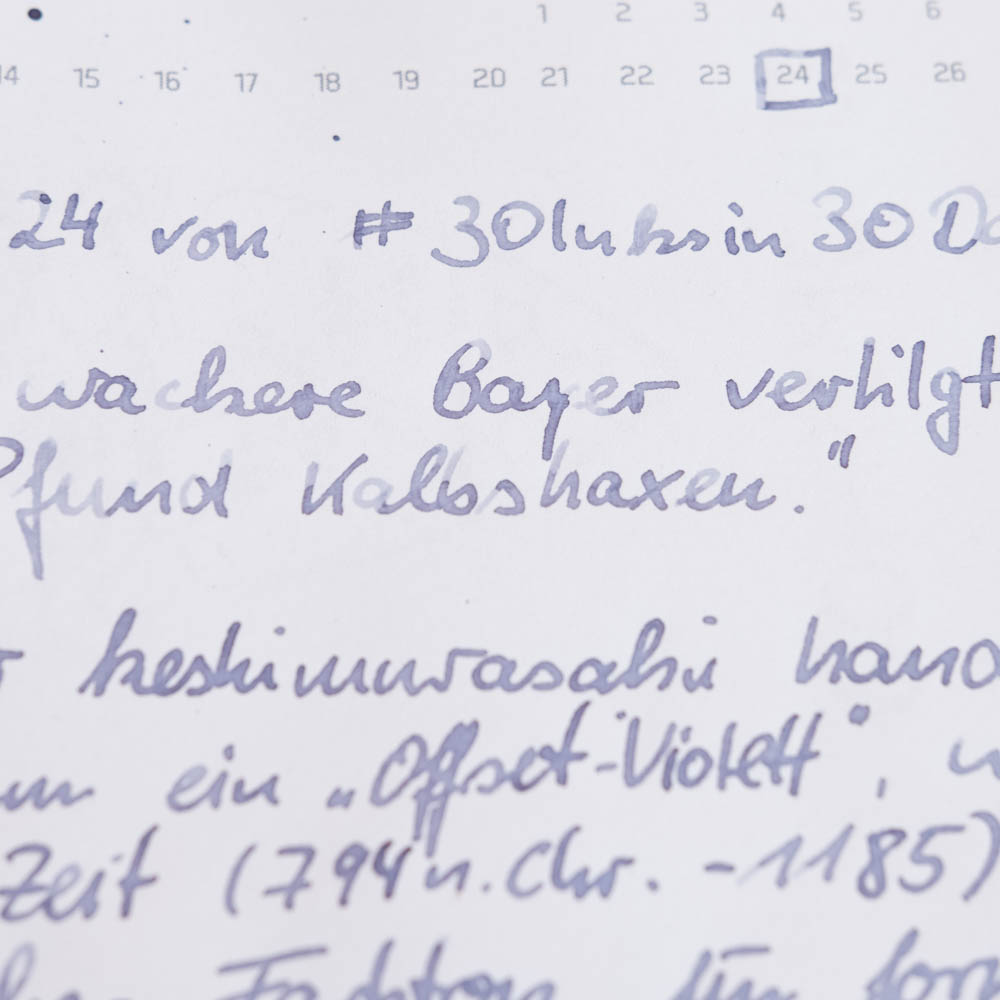 1 2 3 4 5 6
14 15 16 17 18 19 20 21 22 23 24 25 26
24 von #30inksin30Da
wackere Bayer vertilgt
Pfund Kalbshaxen."
r keshimurasaki hand
um ein „Offset-Violett“,
Zeit (794 n. Chr. - 1185)
Faktion für